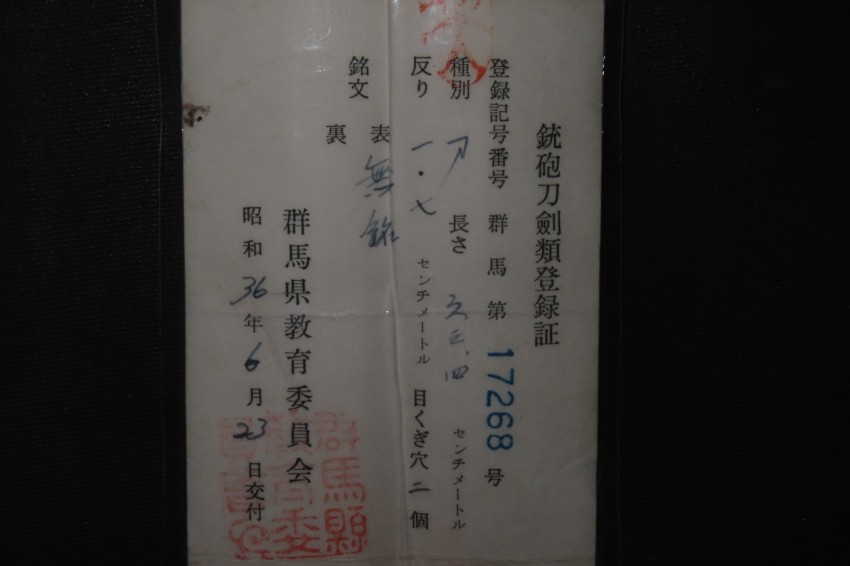 銃砲刀劍類登録証
登録記号番号 群馬第 17268 号
種別 刀 長さ 六三、四 センチメートル
反り 一・七 センチメートル 目くぎ穴 二 個
銘文 表 無銘
裏
群馬県教育委員会
昭和 36 年 6 月 23 日交付